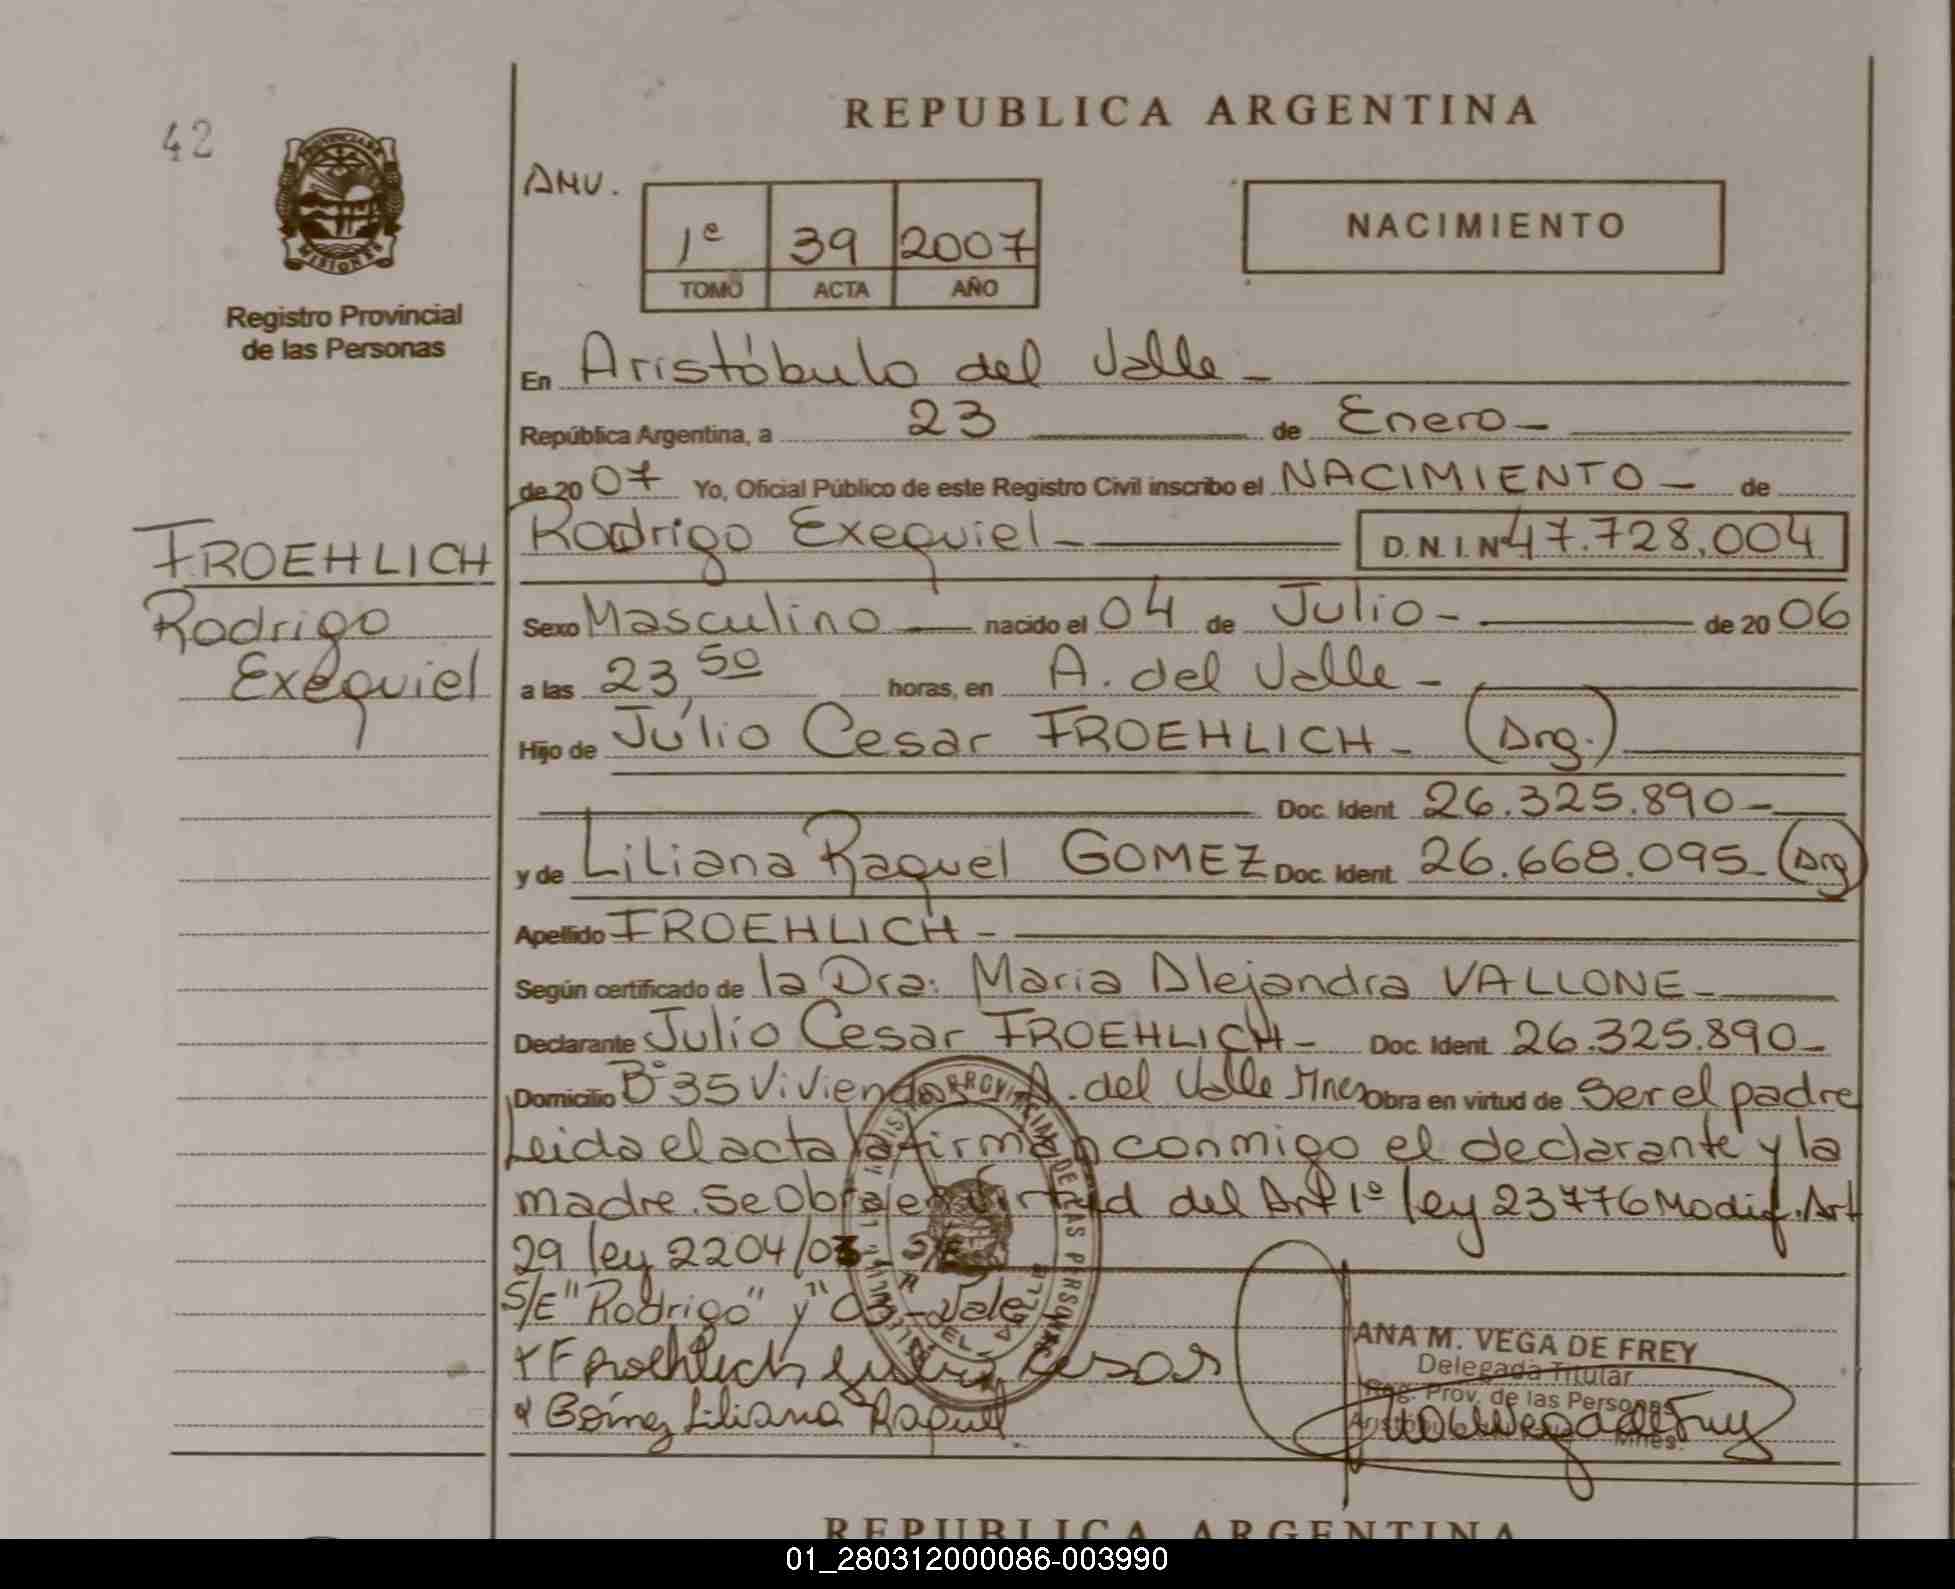 42
REPUBLICA ARGENTINA
PROVINCIA DE MISIONES
Registro Provincial
de las Personas
AMU.
1º 39 2007
TOMO ACTA AÑO
NACIMIENTO
En Aristóbulo del Valle -
República Argentina, a 23 de Enero -
de 20 07 Yo, Oficial Público de este Registro Civil inscribo el NACIMIENTO - de
Rodrigo Exequiel - D.N.I. Nº 47.728.004
FROEHLICH
Rodrigo
Exequiel
Sexo Masculino nacido el 04 de Julio - de 20 06
a las 23,50 horas, en A. del Valle -
Hijo de Júlio Cesar FROEHLICH - (Arg.)
Doc. Ident 26.325.890 -
y de Liliana Raquel GOMEZ Doc. Ident 26.668.095 - (Arg)
Apellido FROEHLICH -
Según certificado de la Dra: Maria Alejandra VALLONE -
Declarante Julio Cesar FROEHLICH - Doc. Ident 26.325.890 -
Domicilio Bº 35 Viviendas A. del Valle Mnes Obra en virtud de ser el padre
Leida el acta la firman conmigo el declarante y la
madre. Se obra en virtud del Art 1º ley 23776 Modif. Art
29 ley 2204/03 S/E
S/E "Rodrigo" y "03 - Vale
x Froehlich Julio Cesar
x Liliana Raquel
ANA M. VEGA DE FREY
Delegada Titular
Reg. Prov. de las Personas
Mnes.
REPUBLICA ARGENTINA
01_280312000086-003990